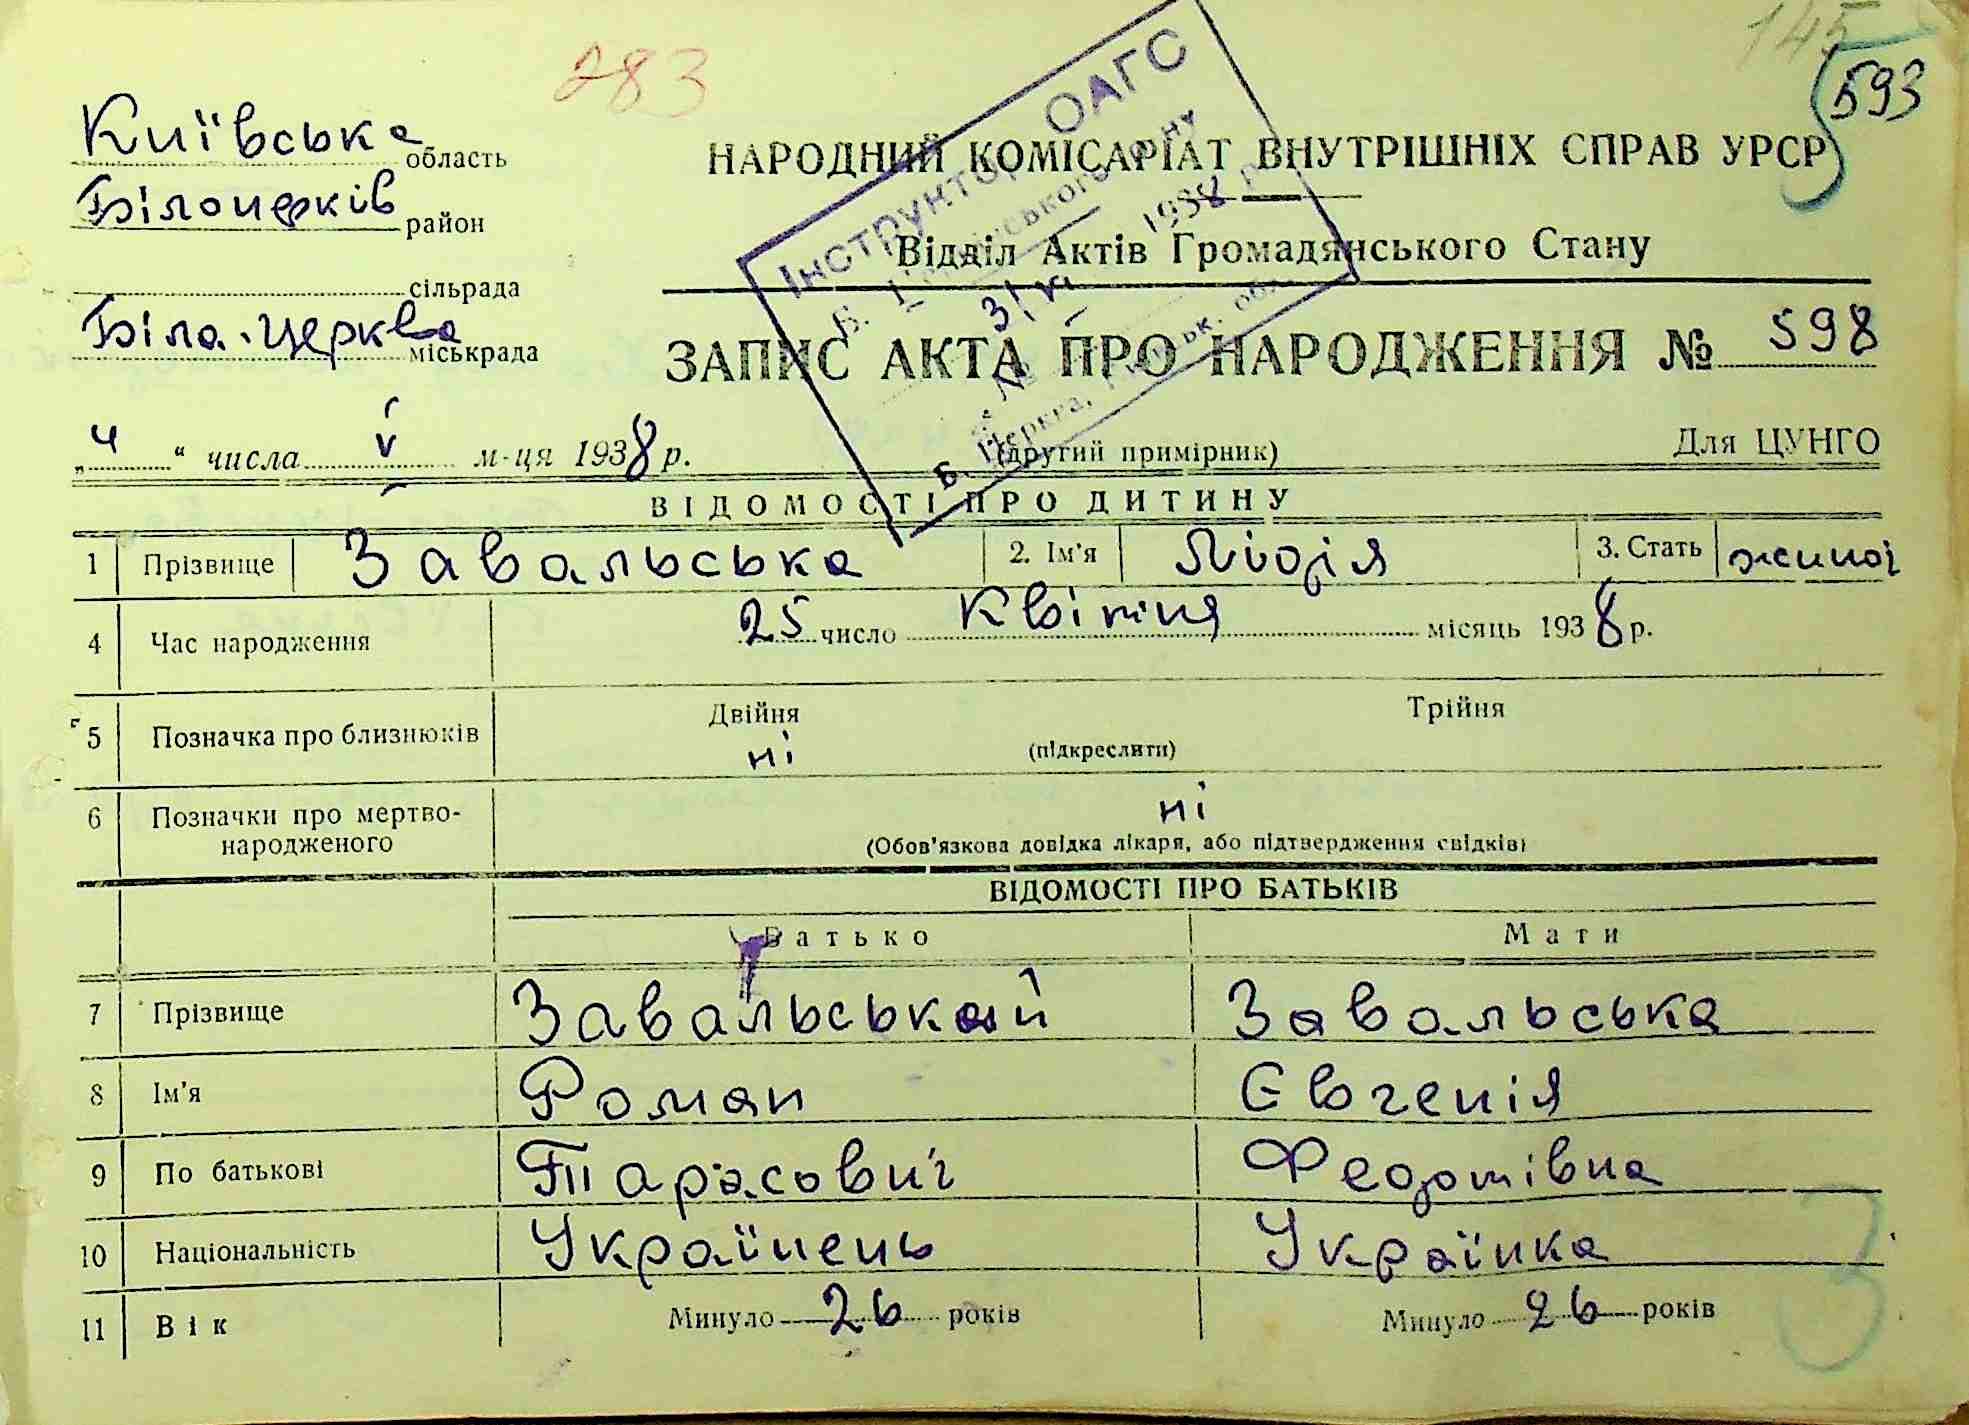 283
145
593
Київська область
Білоцерків район
сільрада
Біла-Церква міськрада
НАРОДНИЙ КОМІСАРІАТ ВНУТРІШНІХ СПРАВ УРСР
Відділ Актів Громадянського Стану
ЗАПИС АКТА ПРО НАРОДЖЕННЯ № 598
Інструктор ОАГС
1938 р.
„ 4 “ числа V м-ця 1938 р.
(другий примірник)
Для ЦУНГО
ВІДОМОСТІ ПРО ДИТИНУ
1 Прізвище Завальська 2. Ім'я Лідія 3. Стать жіноч
4 Час народження 25 число Квітня місяць 1938 р.
5 Позначка про близнюків Двійня ні (підкреслити) Трійня
6 Позначки про мертво-
народженого ні
(Обов'язкова довідка лікаря, або підтвердження свідків)
ВІДОМОСТІ ПРО БАТЬКІВ
Батько Мати
7 Прізвище Завальський Завальська
8 Ім'я Роман Євгенія
9 По батькові Тарасович Федотівна
10 Національність Українець Українка
11 Вік Минуло 26 років Минуло 26 років
3